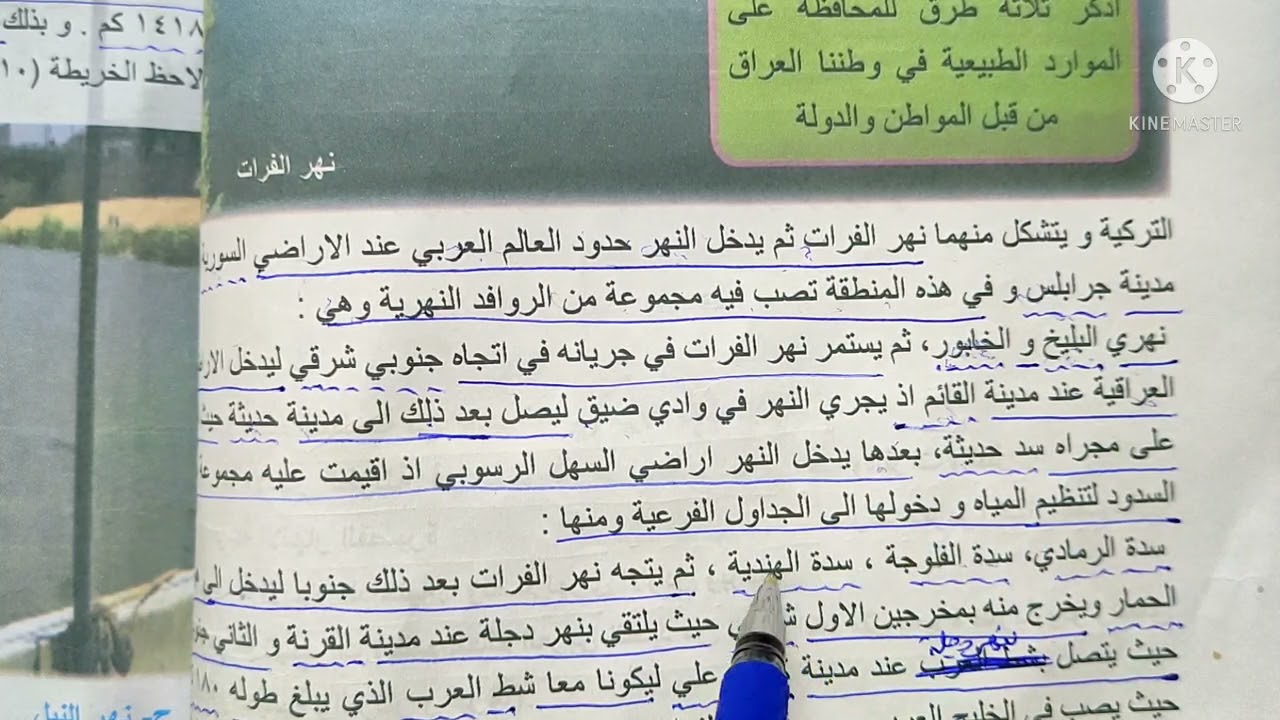 اذكر ثلاثة طرق للمحافظة على
الموارد الطبيعية في وطننا العراق
من قبل المواطن والدولة
KINEMASTER
نهر الفرات
١٤١٨ كم . و بذلك
لاحظ الخريطة
التركية و يتشكل منهما نهر الفرات ثم يدخل النهر حدود العالم العربي عند الاراضي
مدينة جرابلس و في هذه المنطقة تصب فيه مجموعة من الروافد النهرية وهي :
نهري البليخ و الخابور، ثم يستمر نهر الفرات في جريانه في اتجاه جنوبي شرقي ليدخل
العراقية عند مدينة القائم اذ يجري النهر في وادي ضيق ليصل بعد ذلك الى مدينة حديثة
على مجراه سد حديثة، بعدها يدخل النهر اراضي السهل الرسوبي اذ اقيمت عليه مجموعة
السدود لتنظيم المياه و دخولها الى الجداول الفرعية ومنها :
سدة الرمادي، سدة الفلوجة ، سدة الهندية ، ثم يتجه نهر الفرات بعد ذلك جنوبا ليدخل الى
الحمار ويخرج منه بمخرجين الاول حيث يلتقي بنهر دجلة عند مدينة القرنة و الثاني
حيث يتصل عند مدينة علي ليكونا معا شط العرب الذي يبلغ طوله
حيث يصب في الخليج
ج- نهر النيل